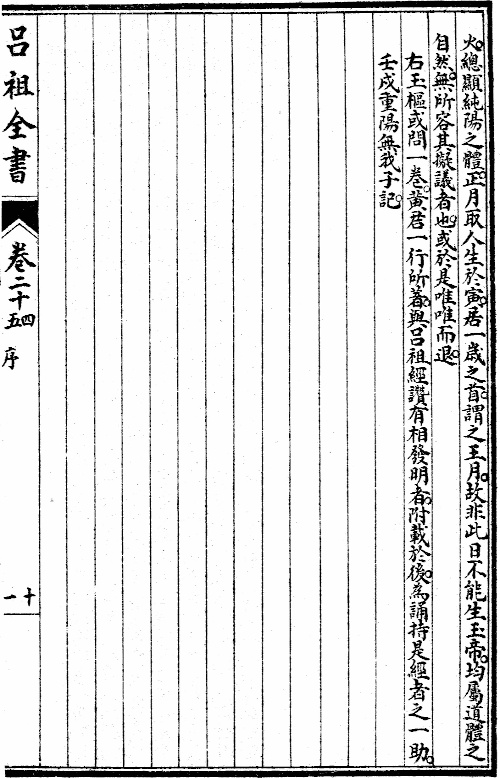 火。總顯純陽之體。正月取人生於寅。居一歲之首。謂之王月。故非此日不能生玉帝。均屬道體之
自然。無所容其擬議者也。或於是唯唯而退。
右玉樞或問一卷。黃君一行所著。與呂祖經讚有相發明者。附載於後。為誦持是經者之一助。
壬戌重陽無我子記。
呂祖全書
卷二十四五
序
十一